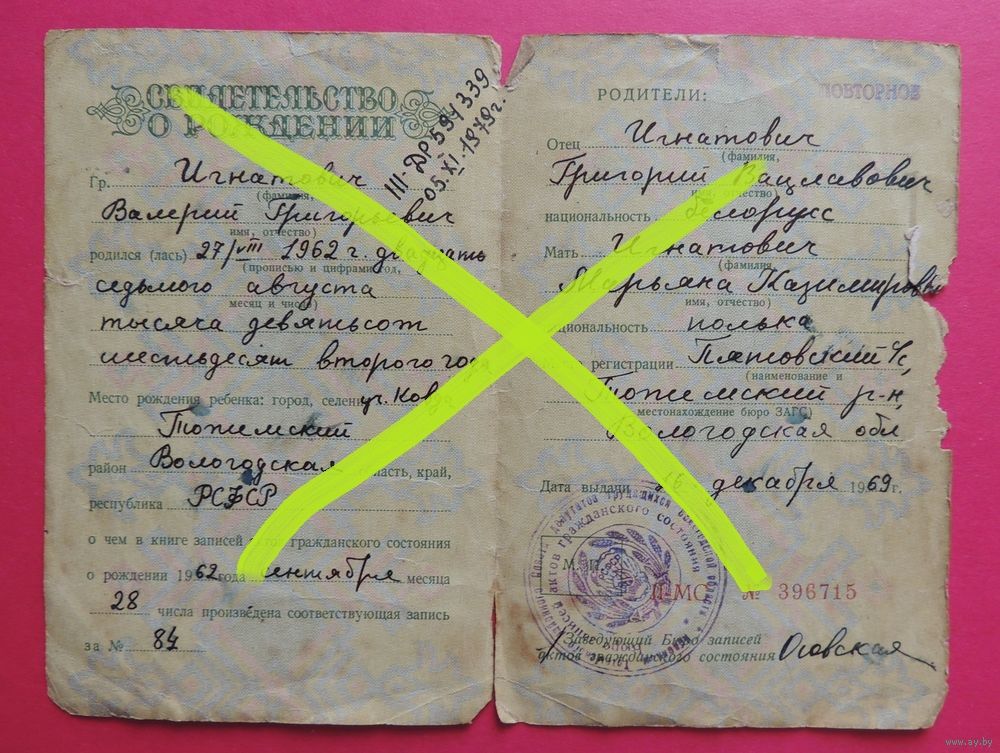 СВИДЕТЕЛЬСТВО
О РОЖДЕНИИ
III-ДР 594339
05.XI.1979г.
Гр. Игнатович
(фамилия,
Валерий Григорьевич
имя, отчество)
родился (лась) 27/VIII 1962 г. двадцать
(прописью и цифрами год,
седьмого августа
месяц и число)
тысяча девятьсот
шестьдесят второго года
Место рождения ребенка: город, селение уч. Ковда
Тотемский
район Вологодская область, край,
республика РСФСР
о чем в книге записей актов гражданского состояния
о рождении 1962 года сентября месяца
28 числа произведена соответствующая запись
за № 84
ПОВТОРНОЕ
РОДИТЕЛИ:
Отец Игнатович
(фамилия,
Григорий Вацлавович
имя, отчество)
национальность белорусс
Мать Игнатович
(фамилия
Марьяна Казимировна
имя, отчество)
национальность полька
регистрации Пятовский с/с,
(наименование и
Тотемский р-н,
местонахождение бюро ЗАГС)
Вологодская обл
Дата выдачи 16 декабря 1969 г.
М. П.
№ 396715
Заведующий Бюро записей
актов гражданского состояния
www.ay.by